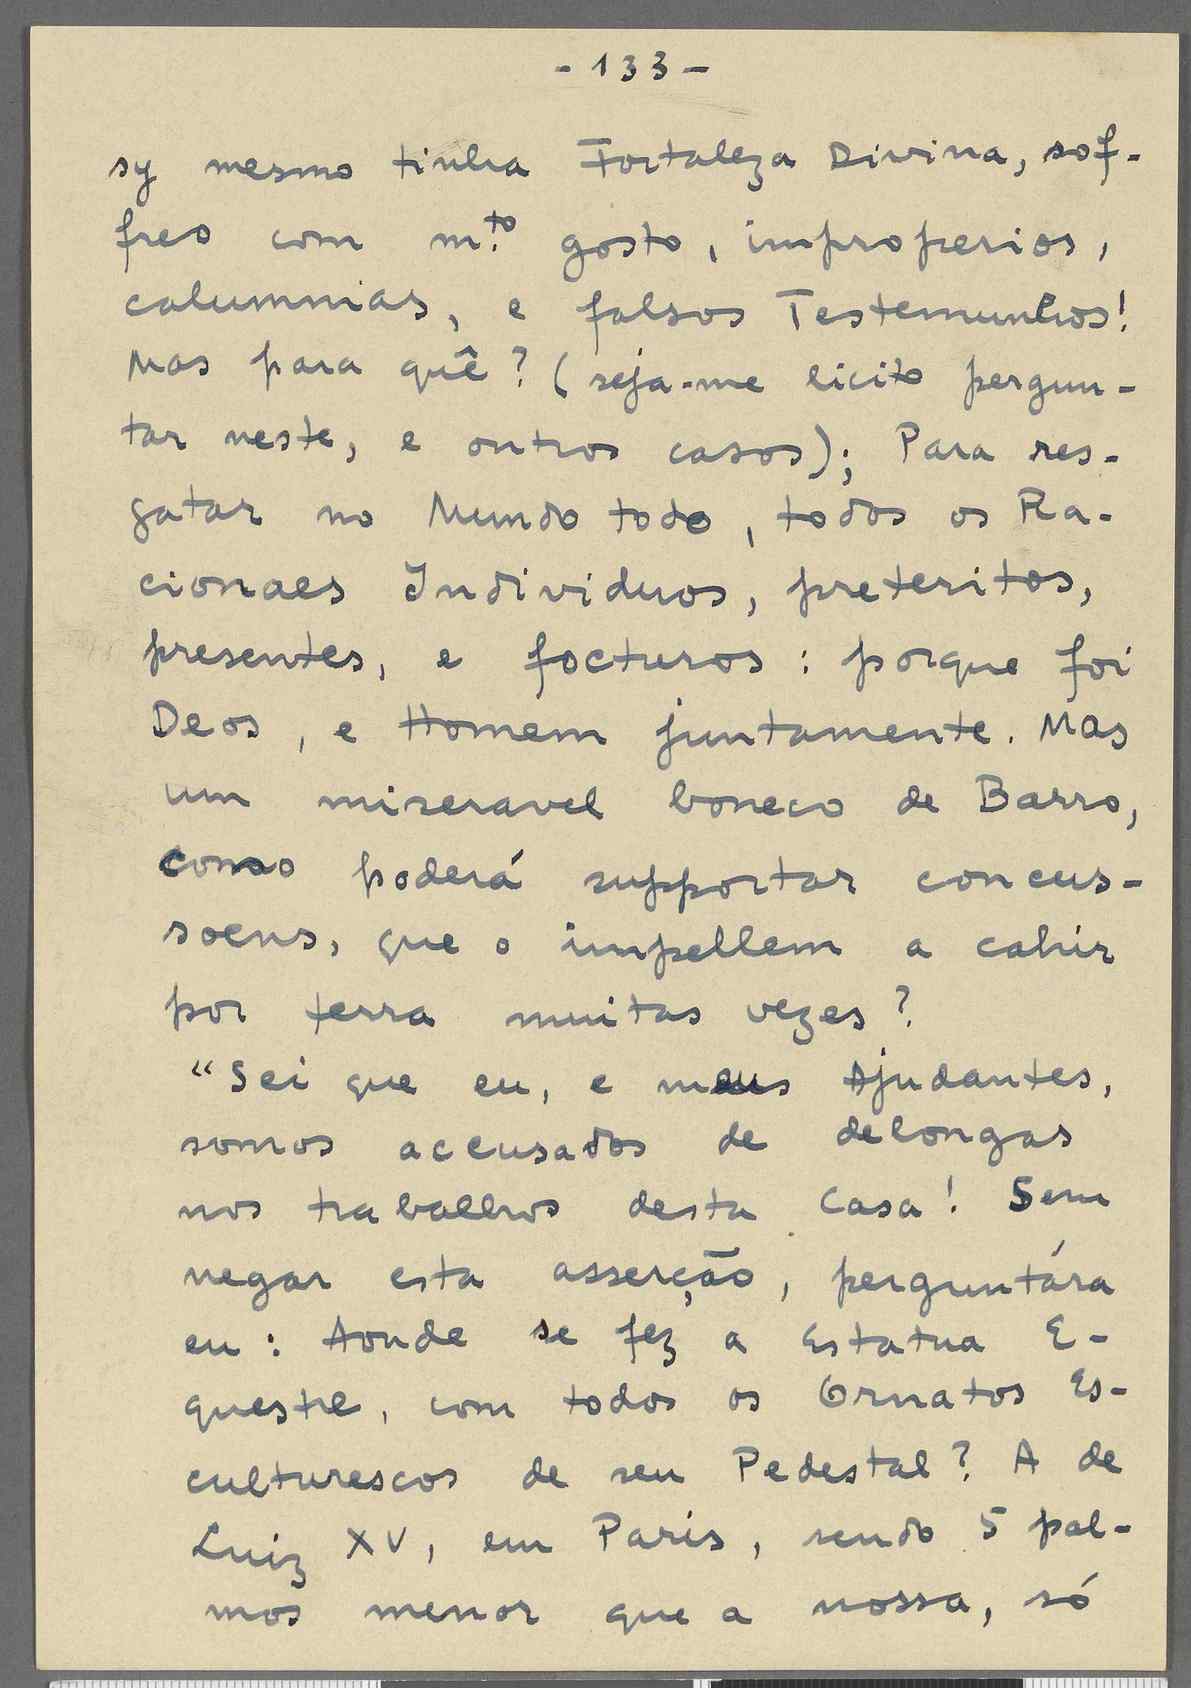 - 133 -
sy mesmo tinha Fortaleza Divina, sof-
freo com m.to gosto, improperios,
calumnias, e falsos Testemunhos!
Mas para quê? (seja-me licito pergun-
tar neste, e outros casos); Para res-
gatar no Mundo todo, todos os Ra-
cionaes Individuos, preteritos,
presentes, e focturos: porque foi
Deos, e Homem juntamente. Mas
um miseravel boneco de Barro,
como poderá supportar concus-
soens, que o impellem a cahir
por terra muitas vezes?
"Sei que eu, e meus Ajudantes,
somos accusados de delongas
nos trabalhos desta Casa! Sem
negar esta asserção, perguntára
eu: Aonde se fez a Estatua E-
questre, com todos os Ornatos Es-
culturescos de seu Pedestal? A de
Luiz XV, em Paris, sendo 5 pal-
mos menor que a nossa, só